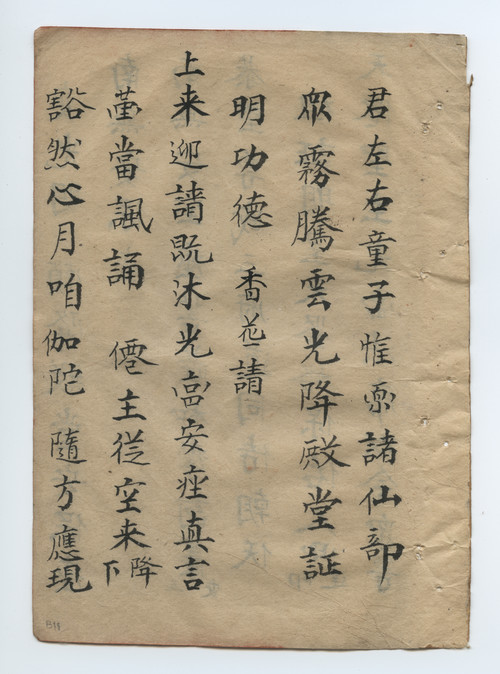 君左右童子惟愿諸仙部
眾霧騰雲光降殿堂証
明功德 香花請
上来迎請既沐光臨安座真言
謹當諷誦 僊主從空来降下
豁然心月咱伽陀隨方應現
B11